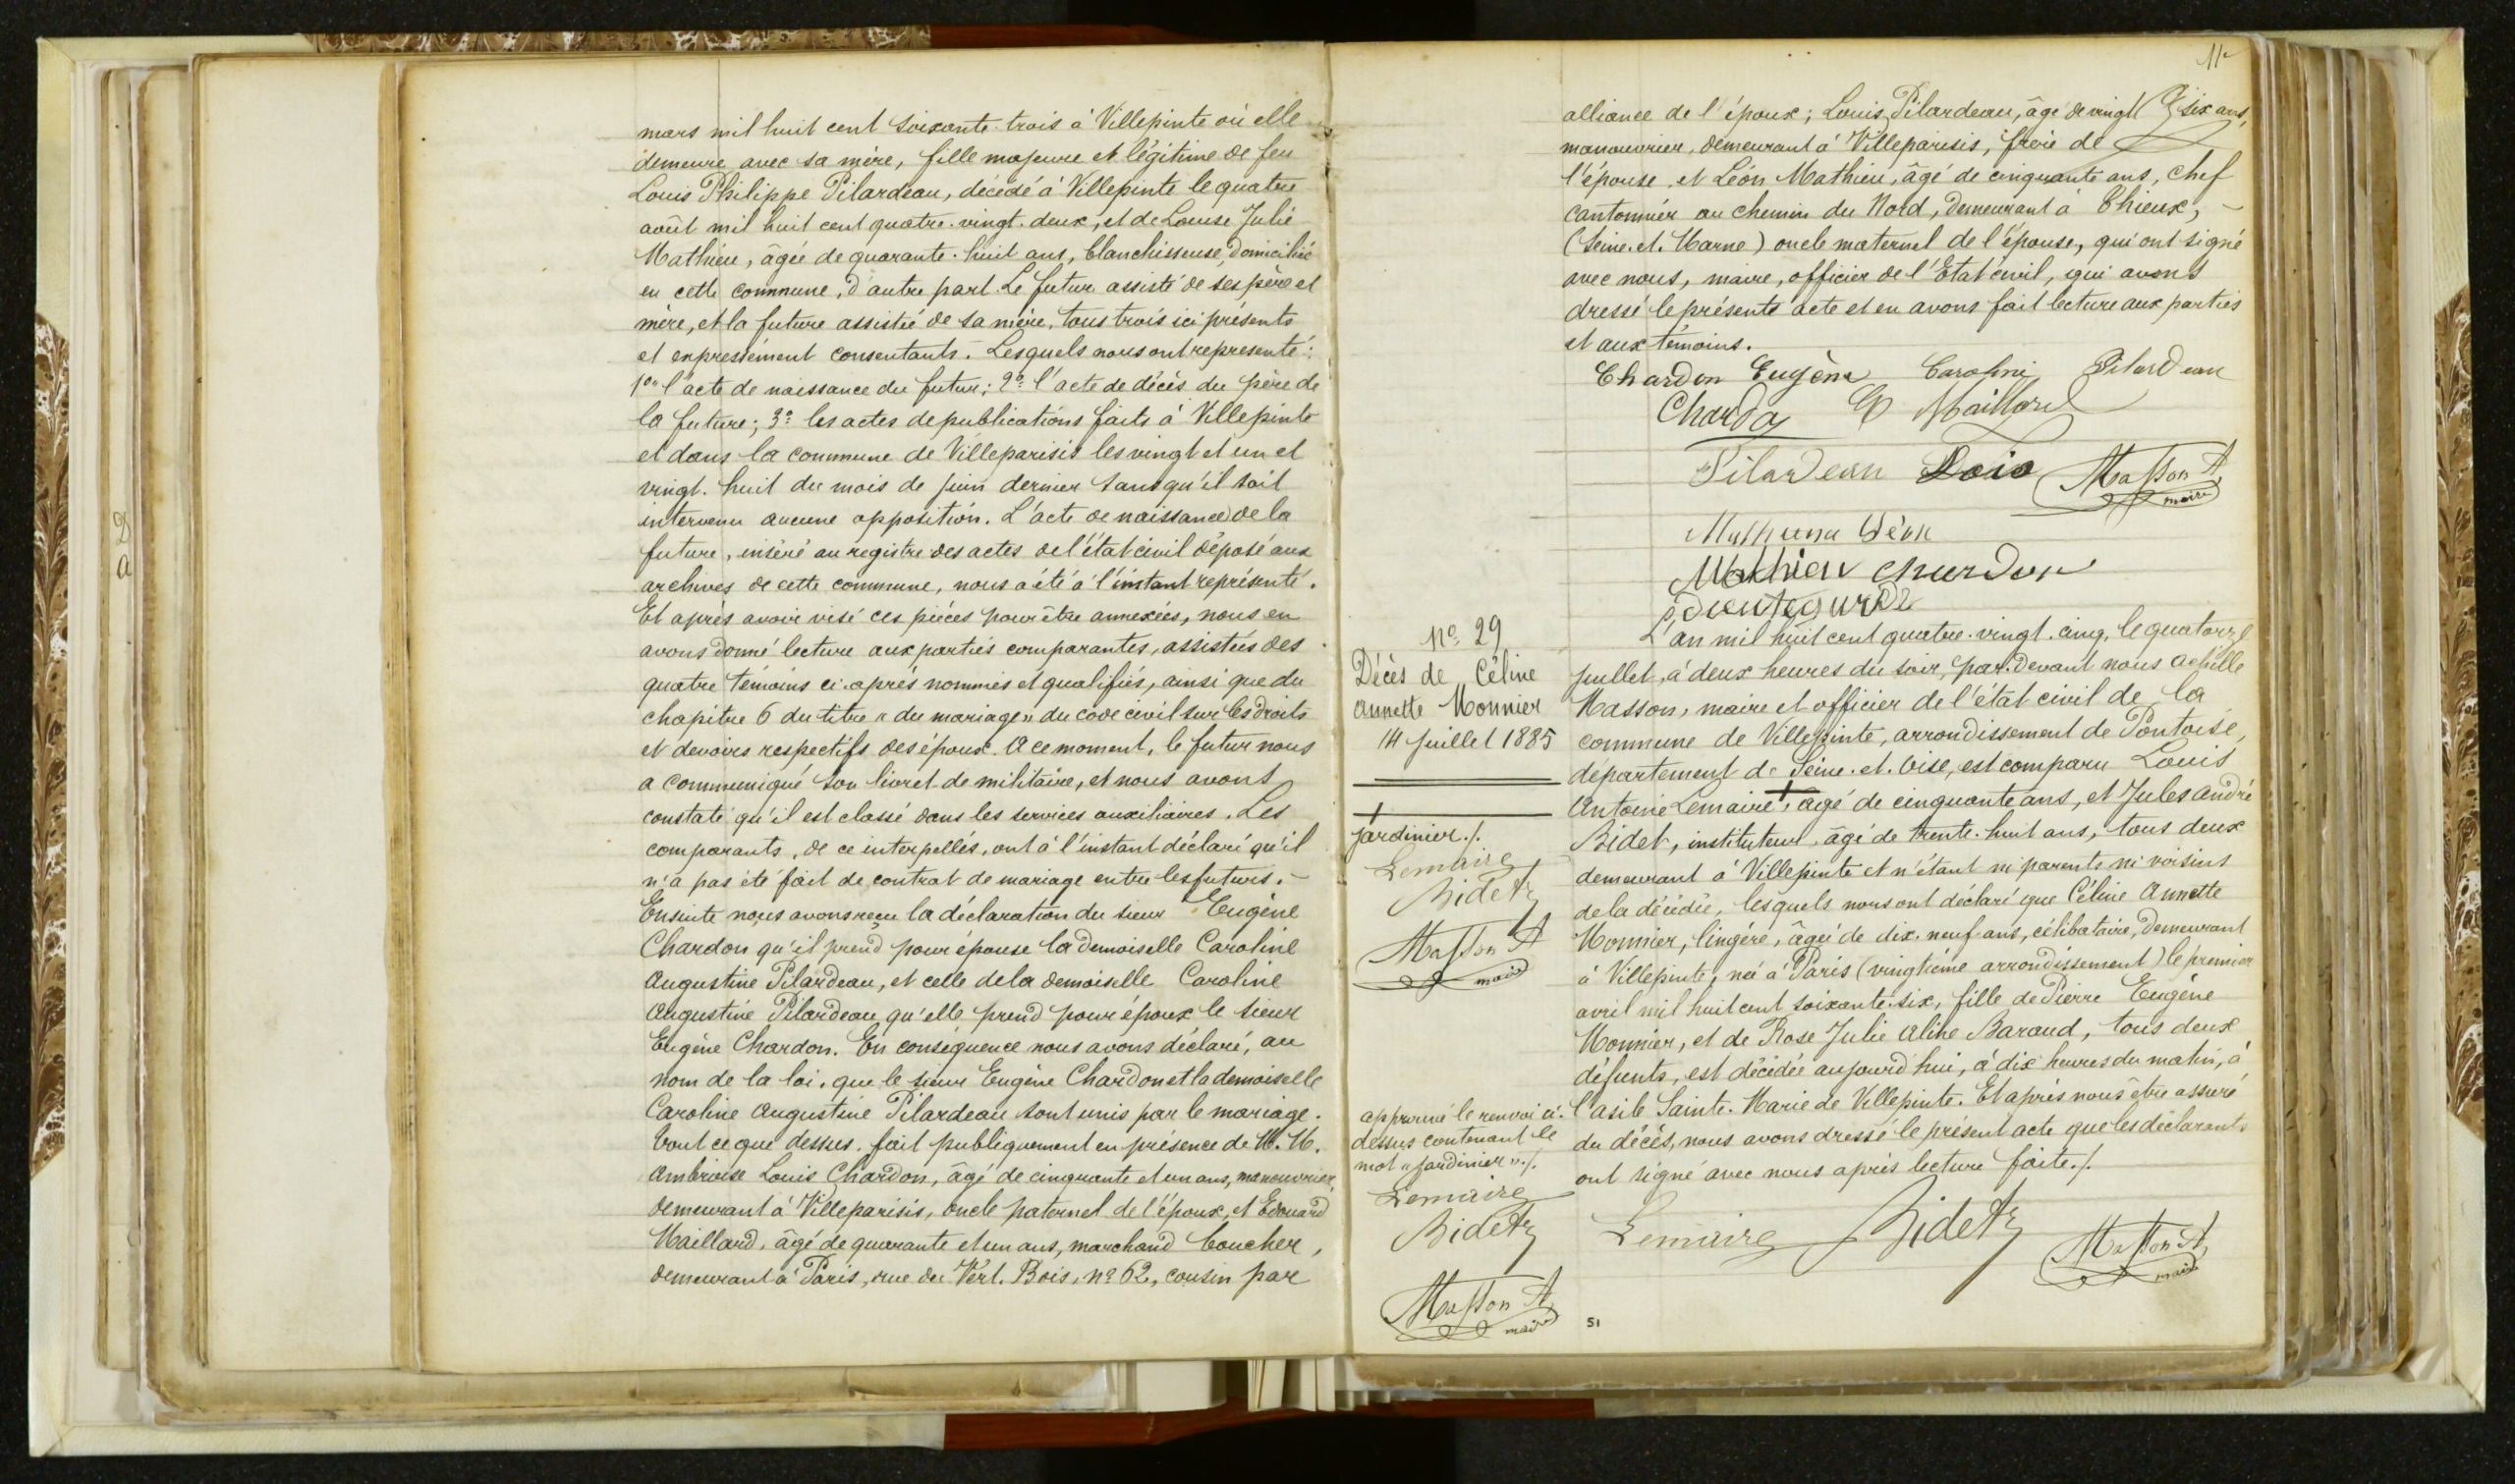 mars mil huit cent soixante-trois à Villepinte où elle
demeure avec sa mère, fille majeure et légitime de feu
Louis Philippe Pilardeau, décédé à Villepinte le quatre
août mil huit cent quatre-vingt-deux, et de Louise Julie
Mathieu, âgée de quarante-huit ans, blanchisseuse, domiciliée
en cette commune, d'autre part. Le futur assisté de ses père et
mère, et la future assistée de sa mère, tous trois ici présents
et expressément consentants. Lesquels nous ont représenté :
1o l'acte de naissance du futur ; 2o l'acte de décès du père de
la future ; 3o les actes de publications faits à Villepinte
et dans la commune de Villeparisis les vingt et un et
vingt-huit du mois de juin dernier sans qu'il soit
intervenu aucune opposition. L'acte de naissance de la
future, inséré au registre des actes de l'état civil déposé aux
archives de cette commune, nous a été à l'instant représenté.
Et après avoir visé ces pièces pour être annexées, nous en
avons donné lecture aux parties comparantes, assistées des
quatre témoins ci-après nommés et qualifiés, ainsi que du
chapitre 6 du titre « du mariage » du code civil sur les droits
et devoirs respectifs des époux. A ce moment, le futur nous
a communiqué son livret de militaire, et nous avons
constaté qu'il est classé dans les services auxiliaires. Les
comparants, de ce interpellés, ont à l'instant déclaré qu'il
n'a pas été fait de contrat de mariage entre les futurs.-
Ensuite nous avons reçu la déclaration du sieur Eugène
Chardon qu'il prend pour épouse la demoiselle Caroline
Augustine Pilardeau, et celle de la demoiselle Caroline
Augustine Pilardeau qu'elle prend pour époux le sieur
Eugène Chardon. En conséquence nous avons déclaré, au
nom de la loi, que le sieur Eugène Chardon et la demoiselle
Caroline Augustine Pilardeau sont unis par le mariage.
Tout ce que dessus fait publiquement en présence de M. M.
Ambroise Louis Chardon, âgé de cinquante et un ans, manouvrier,
demeurant à Villeparisis, oncle paternel de l'époux, et Edouard
Maillard, âgé de quarante et un ans, marchand boucher,
demeurant à Paris, rue du Vert-Bois, no 62, cousin par
alliance de l'époux ; Louis Pilardeau, âgé de vingt six ans,
manouvrier, demeurant à Villeparisis, frère de
l'épouse et Léon Mathieu, âgé de cinquante ans, chef
cantonnier au chemin du Nord, demeurant à Thieux, -
(Seine-et-Marne) oncle maternel de l'épouse, qui ont signé
avec nous, maire, officier de l'Etat civil, qui avons
dressé le présente acte et en avons fait lecture aux parties
et aux témoins.
Chardon Eugène Caroline Pilardeau
Chardon E Maillard
Pilardeau Masson A
maire
Léon
Mathieu Chardon
No 29
Décès de Céline
Annette Monnier
14 Juillet 1885
jardinier ./.
Lemaire
Bidet
Masson A
maire
approuvé le renvoi ci-
dessus contenant le
mot « jardinier » ./.
Lemaire
Bidet
Masson A
maire
L'an mil huit cent quatre-vingt-cinq, le quatorze
juillet, à deux heures du soir, par-devant nous Achille
Masson, maire et officier de l'état civil de la
commune de Villepinte, arrondissement de Pontoise,
département de Seine-et-Oise, est comparu Louis
Antoine Lemaire, âgé de cinquante ans, et Jules André
Bidet, instituteur, âgé de trente-huit ans, tous deux
demeurant à Villepinte et n'étant ni parents ni voisins
de la décédée, lesquels nous ont déclaré que Céline Annette
Monnier, lingère, âgée de dix-neuf ans, célibataire, demeurant
à Villepinte, née à Paris (vingtième arrondissement) le premier
avril mil huit cent soixante-six, fille de Pierre Eugène
Monnier, et de Rose Julie Aline Baraud, tous deux
défunts, est décédée aujourd'hui, à dix heures du matin, à
l'asile Sainte-Marie de Villepinte. Et après nous être assuré
du décès, nous avons dressé le présent acte que les déclarants
ont signé avec nous après lecture faite ./.
Lemaire Bidet Masson A
maire
51